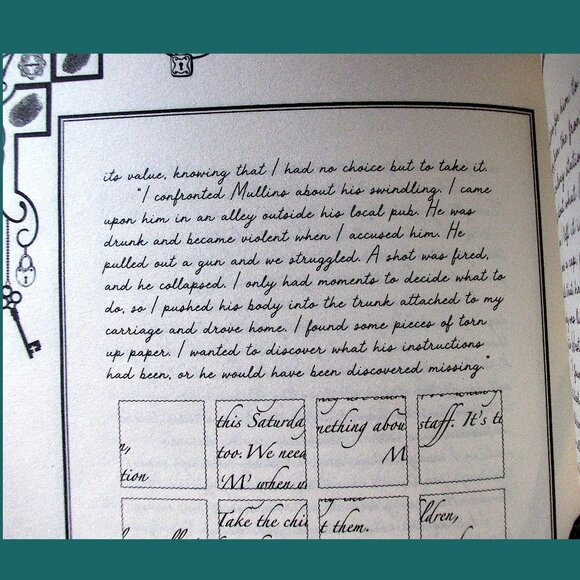 its value, knowing that I had no choice but to take it.
"I confronted Mullins about his swindling. I came
upon him in an alley outside his local pub. He was
drunk and became violent when I accused him. He
pulled out a gun and we struggled. A shot was fired,
and he collapsed. I only had moments to decide what to
do, so I pushed his body into the trunk attached to my
carriage and drove home. I found some pieces of torn
up paper. I wanted to discover what his instructions
had been, or he would have been discovered missing."
this Saturda
too. We need
'M' when
tion
mething abou
M
staff. It's t
Take the chi
t them.
ldren,